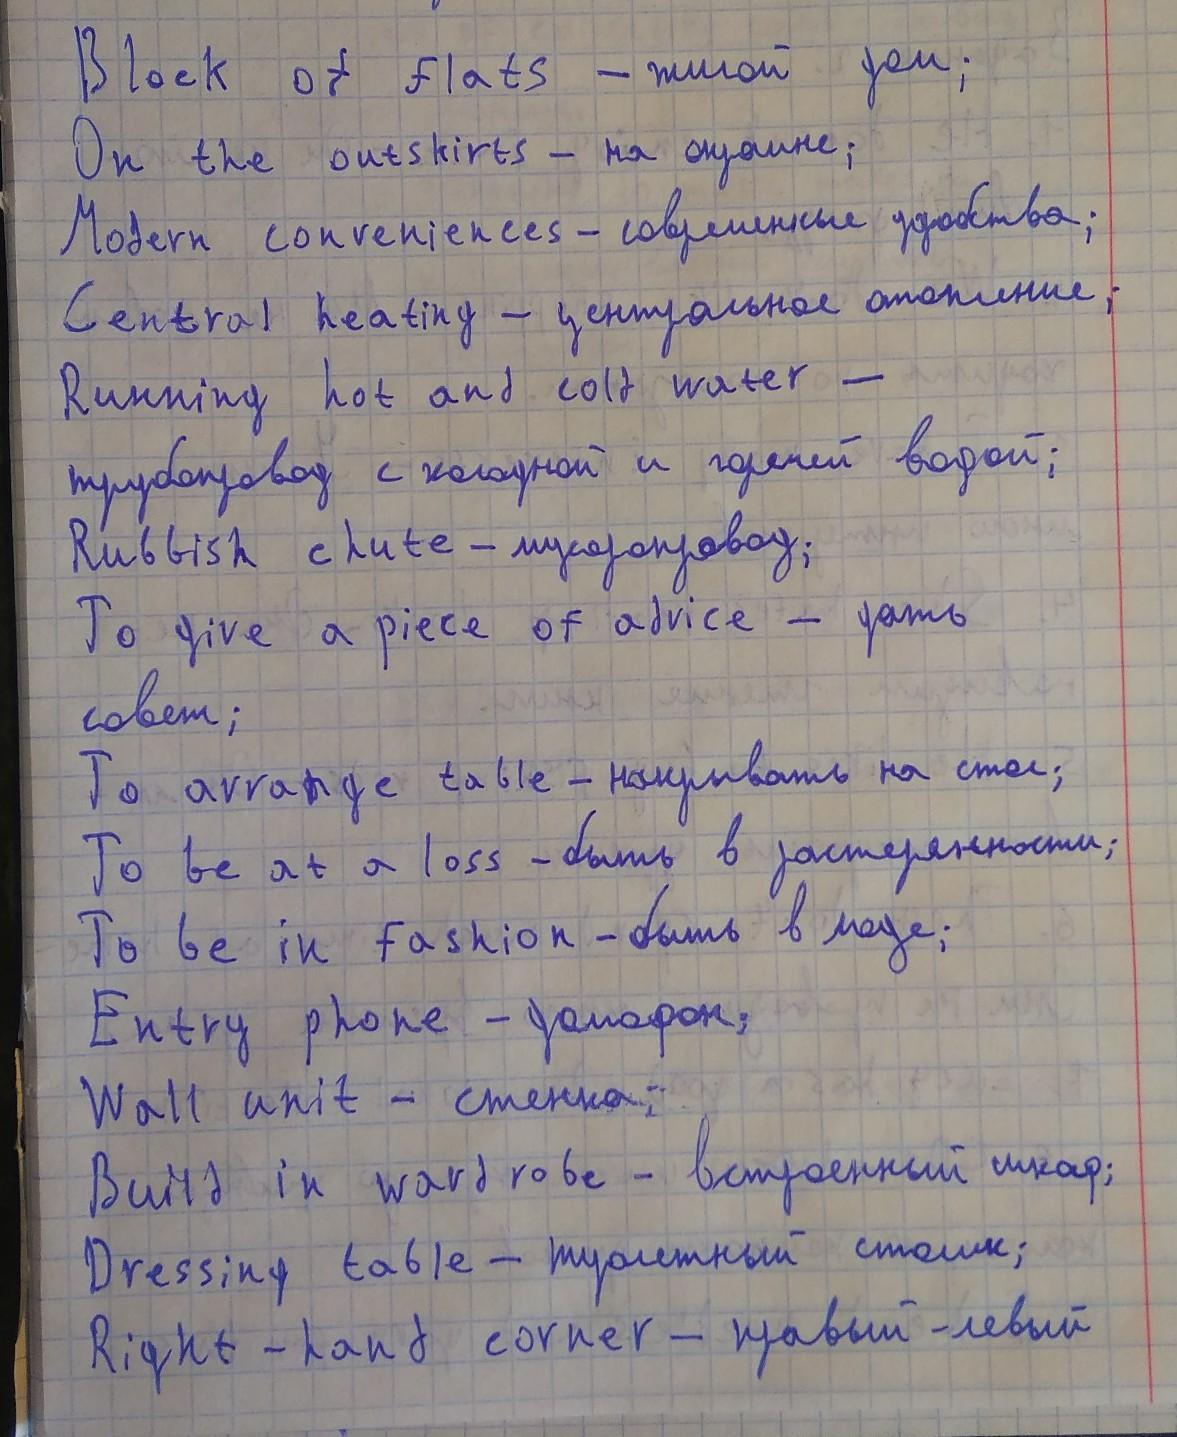 Block of flats – жилой дом;
On the outskirts – на окраине;
Modern conveniences – современные удобства;
Central heating – центральное отопление;
Running hot and cold water –
трубопровод с холодной и горячей водой;
Rubbish chute – мусоропровод;
To give a piece of advice – дать
совет;
To arrange table – накрывать на стол;
To be at a loss – быть в растерянности;
To be in fashion – быть в моде;
Entry phone – домофон;
Wall unit – стенка;
Build in wardrobe – встроенный шкаф;
Dressing table – туалетный столик;
Right-hand corner – правый-левый